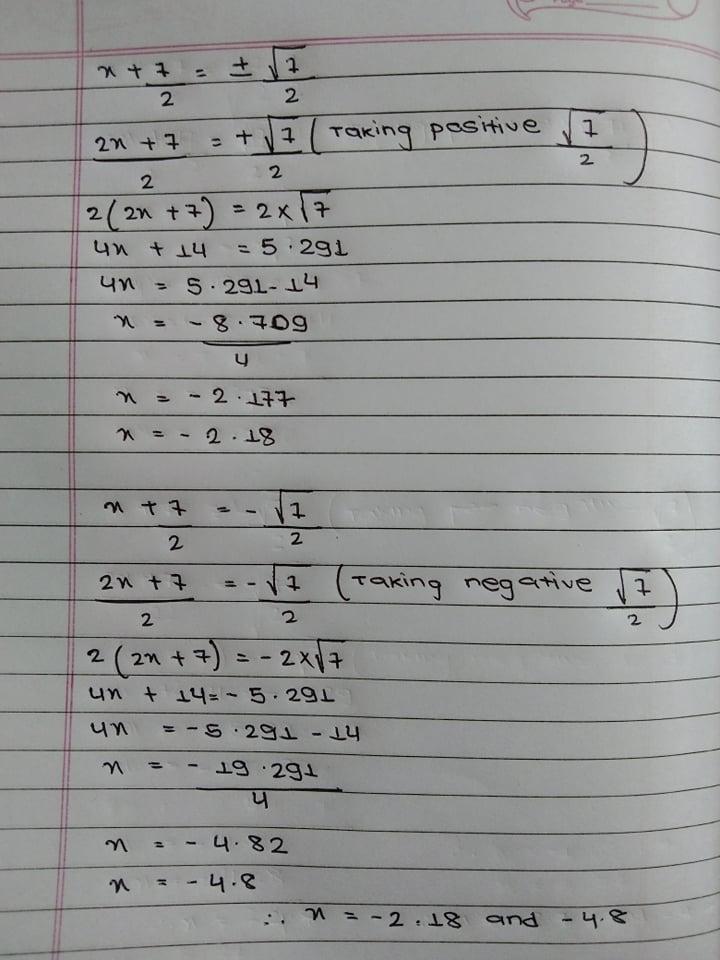 x + 7/2 = ± √7/2
2x + 7/2 = + √7/2 (Taking positive √7/2)
2(2x + 7) = 2 × √7
4x + 14 = 5.291
4x = 5.291 - 14
x = - 8.709/4
x = - 2.177
x = - 2.18
x + 7/2 = - √7/2
2x + 7/2 = - √7/2 (Taking negative √7/2)
2(2x + 7) = - 2 × √7
4x + 14 = - 5.291
4x = - 5.291 - 14
x = - 19.291/4
x = - 4.82
x = - 4.8
∴ x = - 2.18 and - 4.8